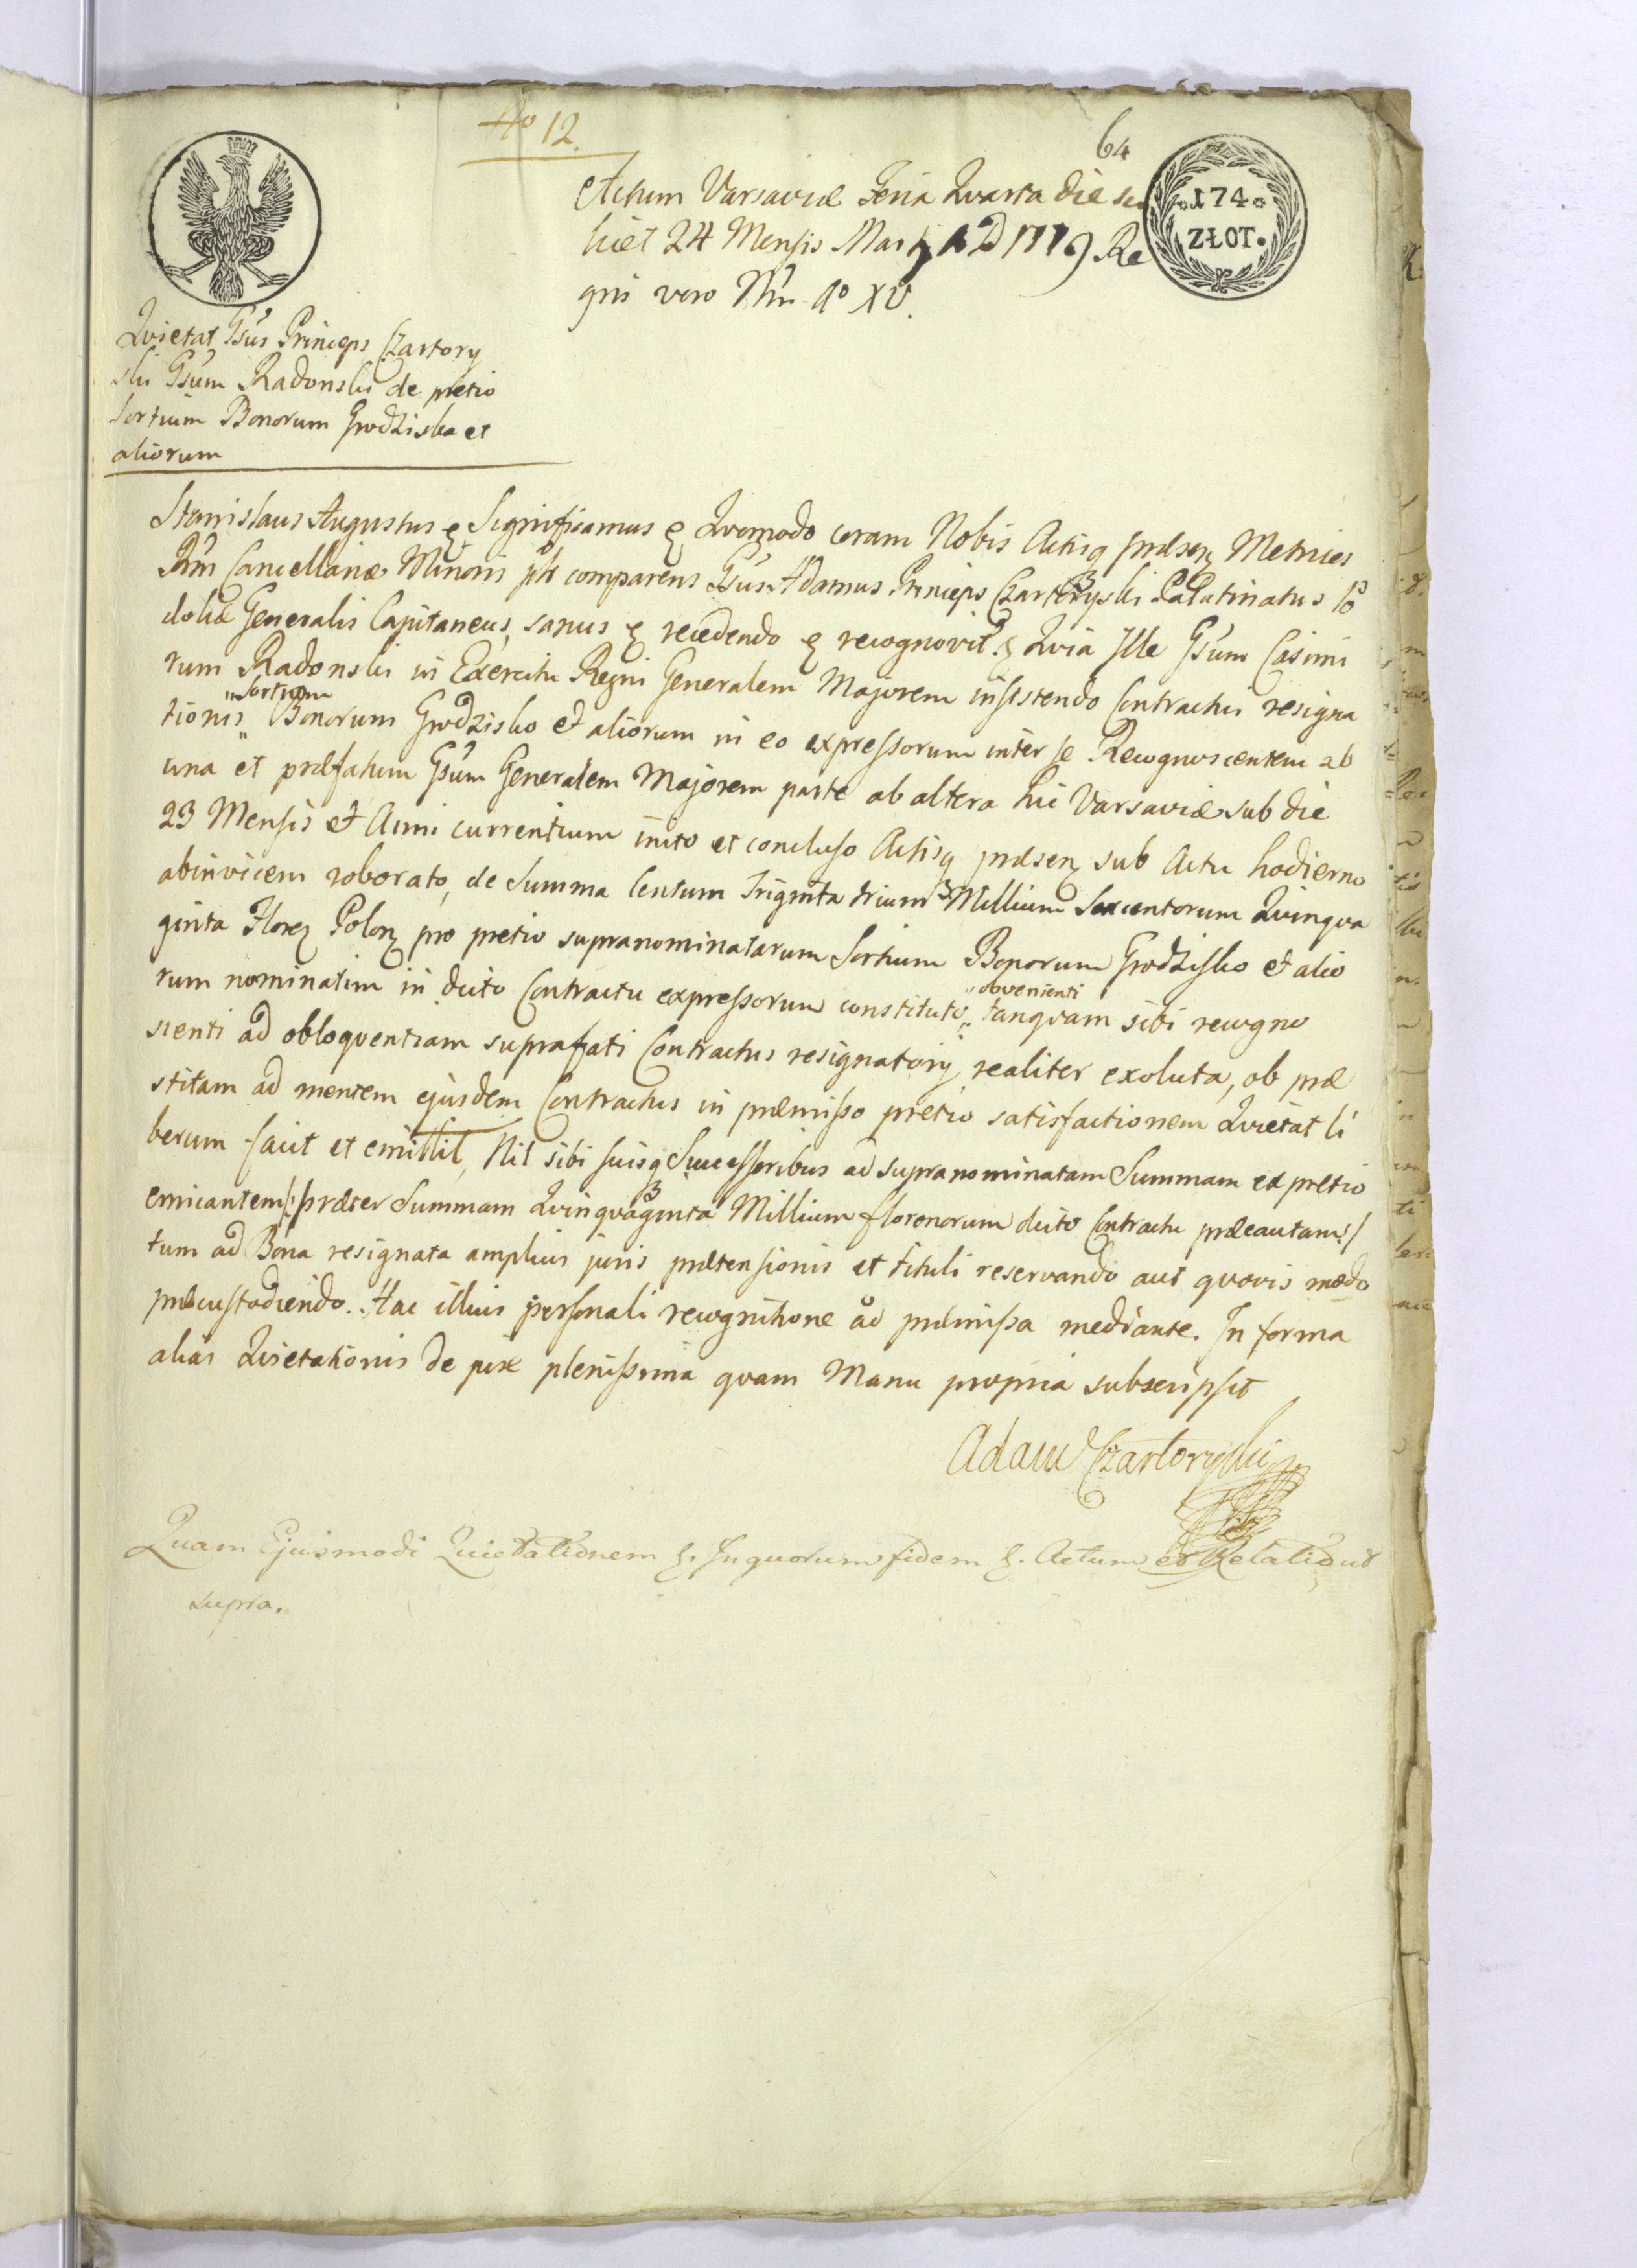 No 12.
64
Actum Varsaviæ Feria Qvarta die sci
licet 24 Mensis Martij A D 1779 Re
gni vero Nri Ao XV.
174
ZŁOT.
Qvietat Gsus Princeps Czartory
ski Gsum Radonski de pretio
Sortium Bonorum Grodziska et
aliorum
Stanislaus Augustus & Significamus & Qvomodo coram Nobis Actisq præsen Metrices
Rni Cancellariæ Minoris pltr comparens Gsus Adamus Princeps Czartoryski Palatinatus Po
doliæ Generalis Capitaneus, sanus & recedendo & recognovit & Qvia Ille Gsum Casimi
rum Radonski in Exercitu Regni Generalem Majorem insistendo Contractui resigna
tionis „Sortium„ Bonorum Grodzisko et aliorum in eo expressorum inter se Recognoscentem ab
una et præfatum Gsum Generalem Majorem parte ab altera hic Varsaviæ sub die
23 Mensis et Anni currentium inito et concluso Actisq præsen sub Actu hodierno
abinvicem roborato, de Summa Centum Triginta trium Millium Sexcentorum Qvinqva
ginta Floren Polon pro pretio supranominatarum Sortium Bonorum Grodzisko et alio
rum nominatim in dicto Contractu expressorum constituto „obvenienti„ tanqvam sibi recogno
scenti ad obloqventiam suprafati Contractus resignatorij realiter exoluta, ob præ
stitam ad mentem ejusdem Contractus in præmisso pretio satisfactionem Qvietat li
berum facit et emittit, Nil sibi suisq Successoribus ad supranominatam Summam ex pretio
emicantem /: præter Summam Qvinqvaginta Millium florenorum dicto Contractu præcautam :/
tum ad Bona resignata amplius juris prætensionis et tituli reservando aut qvovis modo
præcustodiendo. Hac illius personali recognitione ad præmissa mediante. In forma
alias Qvietationis de jure plenissima qvam Manu propria subscripsit
Adam Czartoryski
Quam Ejusmodi Quietationem &. In quorum fidem &. Actum et Relatio ut
supra.